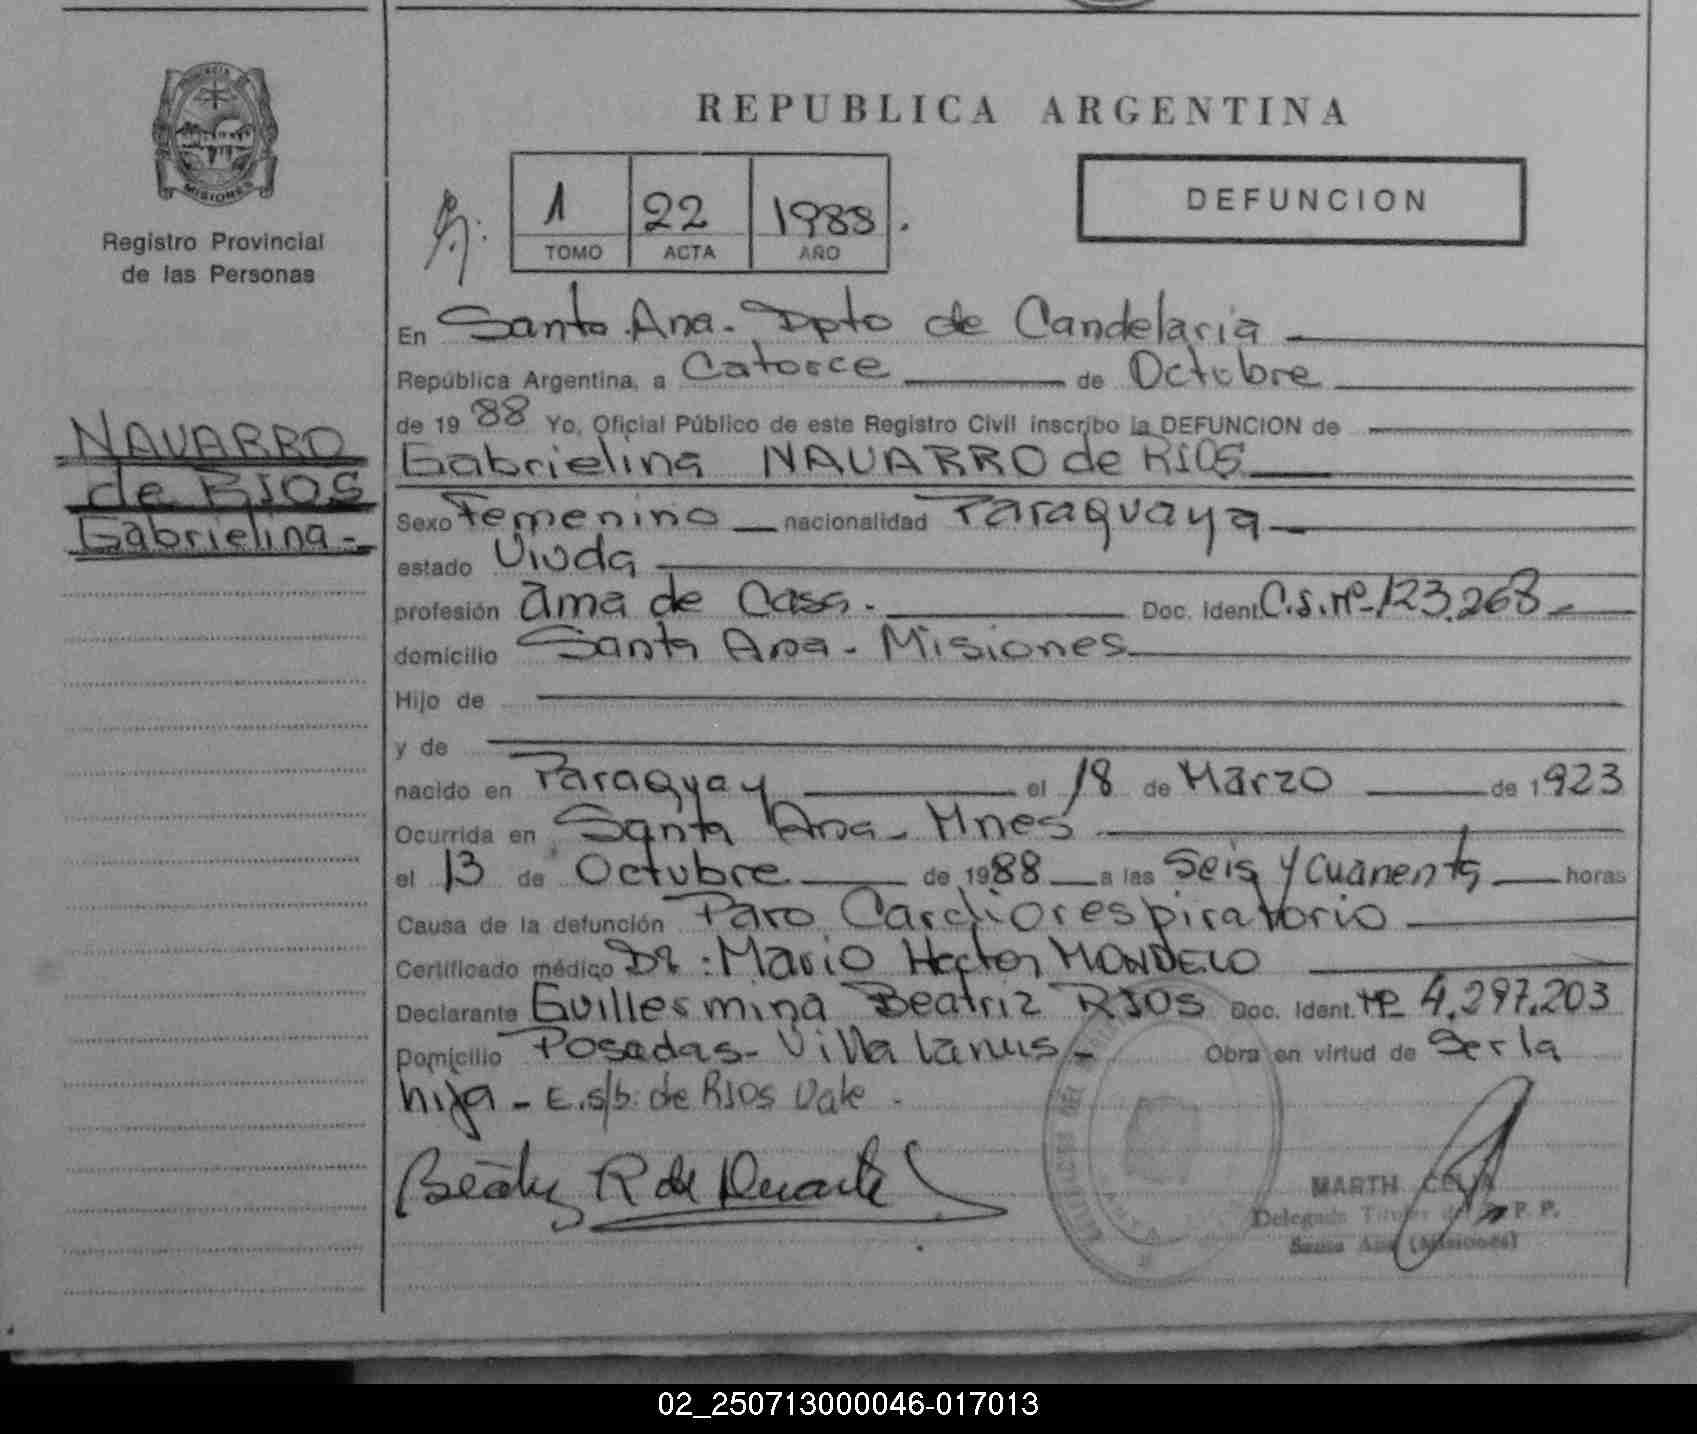 REPUBLICA ARGENTINA
PROVINCIA DE
MISIONES
Registro Provincial
de las Personas
1 22 1988.
TOMO ACTA AÑO
DEFUNCION
En Santa Ana. Dpto de Candelaria
República Argentina, a Catorce de Octubre
de 1988 Yo, Oficial Público de este Registro Civil inscribo la DEFUNCION de
NAVARRO
de RIOS
Gabrielina-
Gabrielina NAVARRO de RIOS
Sexo Femenino nacionalidad Paraguaya
estado Viuda
profesión ama de Casa. Doc. Ident. C.I. nº 123.268-
domicilio Santa Ana - Misiones
Hijo de
y de
nacido en Paraguay el 18 de Marzo de 1923
Ocurrida en Santa Ana - Mnes
el 13 de Octubre de 1988 a las Seis y Cuarenta horas
Causa de la defunción Paro Cardiorespiratorio
Certificado médico Dr: Mario Hector MONDELO
Declarante Guillermina Beatriz RIOS Doc. Ident. nº 4.297.203
Domicilio Posadas - Villa Lanus - Obra en virtud de Ser la
hija - E.s/b: de RIOS Vale.
Beatriz R de Duarte
MARTH CELIA
Delegada Titular del P. P.
Santa Ana (Misiones)
02_250713000046-017013